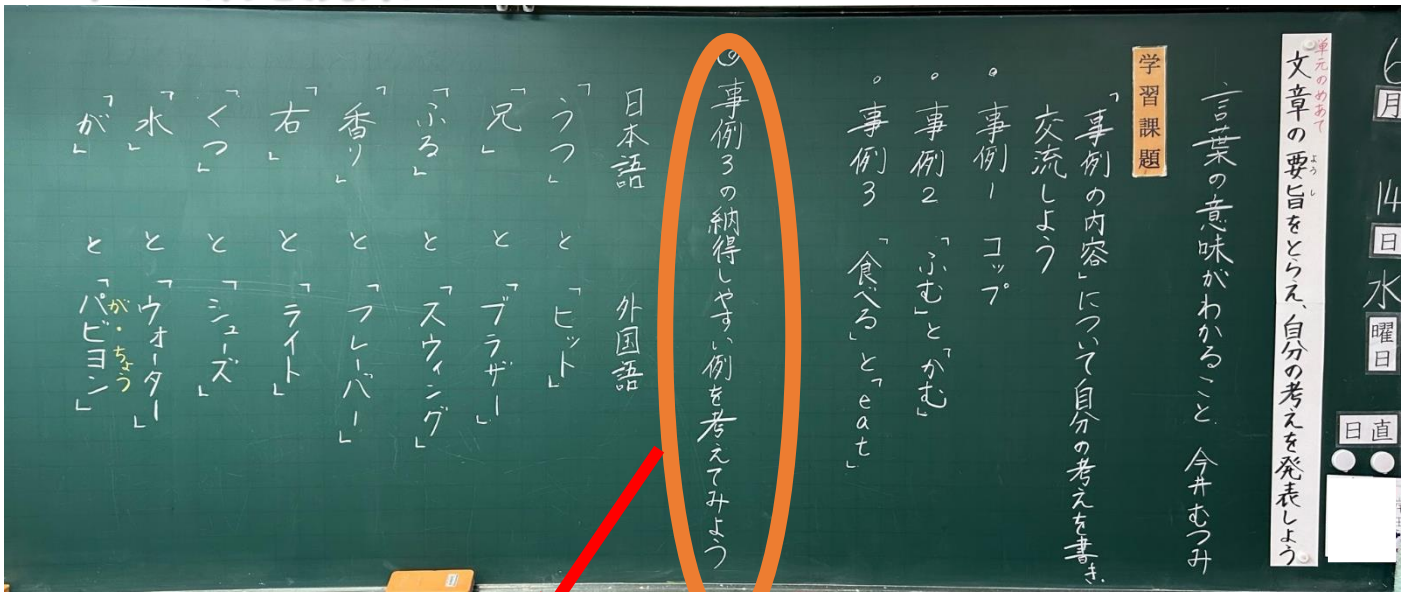 6月14日水曜日
日直
単元のめあて
文章の要旨をとらえ、自分の考えを発表しよう
ようし
言葉の意味がわかること 今井むつみ
学習課題
「事例の内容」について自分の考えを書き、
交流しよう
。事例1 コップ
。事例2 「ふむ」と「かむ」
。事例3 「食べる」と「eat」
◎事例3の納得しやすい例を考えてみよう
日本語 外国語
「うつ」と「ヒット」
「兄」と「ブラザー」
「ふる」と「スウィング」
「香り」と「フレーバー」
「右」と「ライト」
「くつ」と「シューズ」
「水」と「ウォーター」
が・ちょう
「が」と「パピヨン」